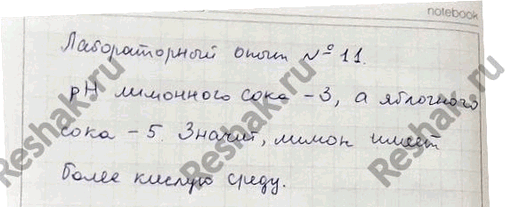 notebook
Лабораторный опыт № 11.
pH лимонного сока - 3, а яблочного
сока - 5. Значит, лимон имеет
более кислую среду.
Reshak.ru
Reshak.ru
Reshak.ru